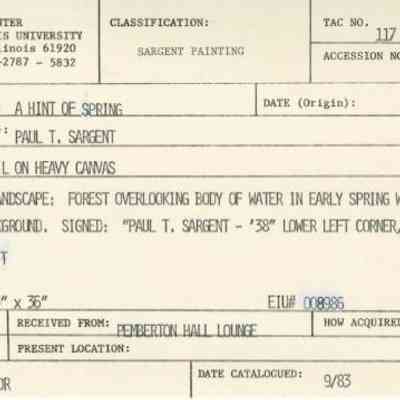 NTER
IS UNIVERSITY
llinois 61920
-2787 - 5832
CLASSIFICATION:
SARGENT PAINTING
TAC NO.
117
ACCESSION NO
A HINT OF SPRING
DATE (Origin):
: PAUL T. SARGENT
L ON HEAVY CANVAS
ANDSCAPE: FOREST OVERLOOKING BODY OF WATER IN EARLY SPRING W
KGROUND. SIGNED: "PAUL T. SARGENT - '38" LOWER LEFT CORNER,
T
" x 36"
EIU# 008986
RECEIVED FROM: PEMBERTON HALL LOUNGE
HOW ACQUIRED
PRESENT LOCATION:
OR
DATE CATALOGUED: 9/83